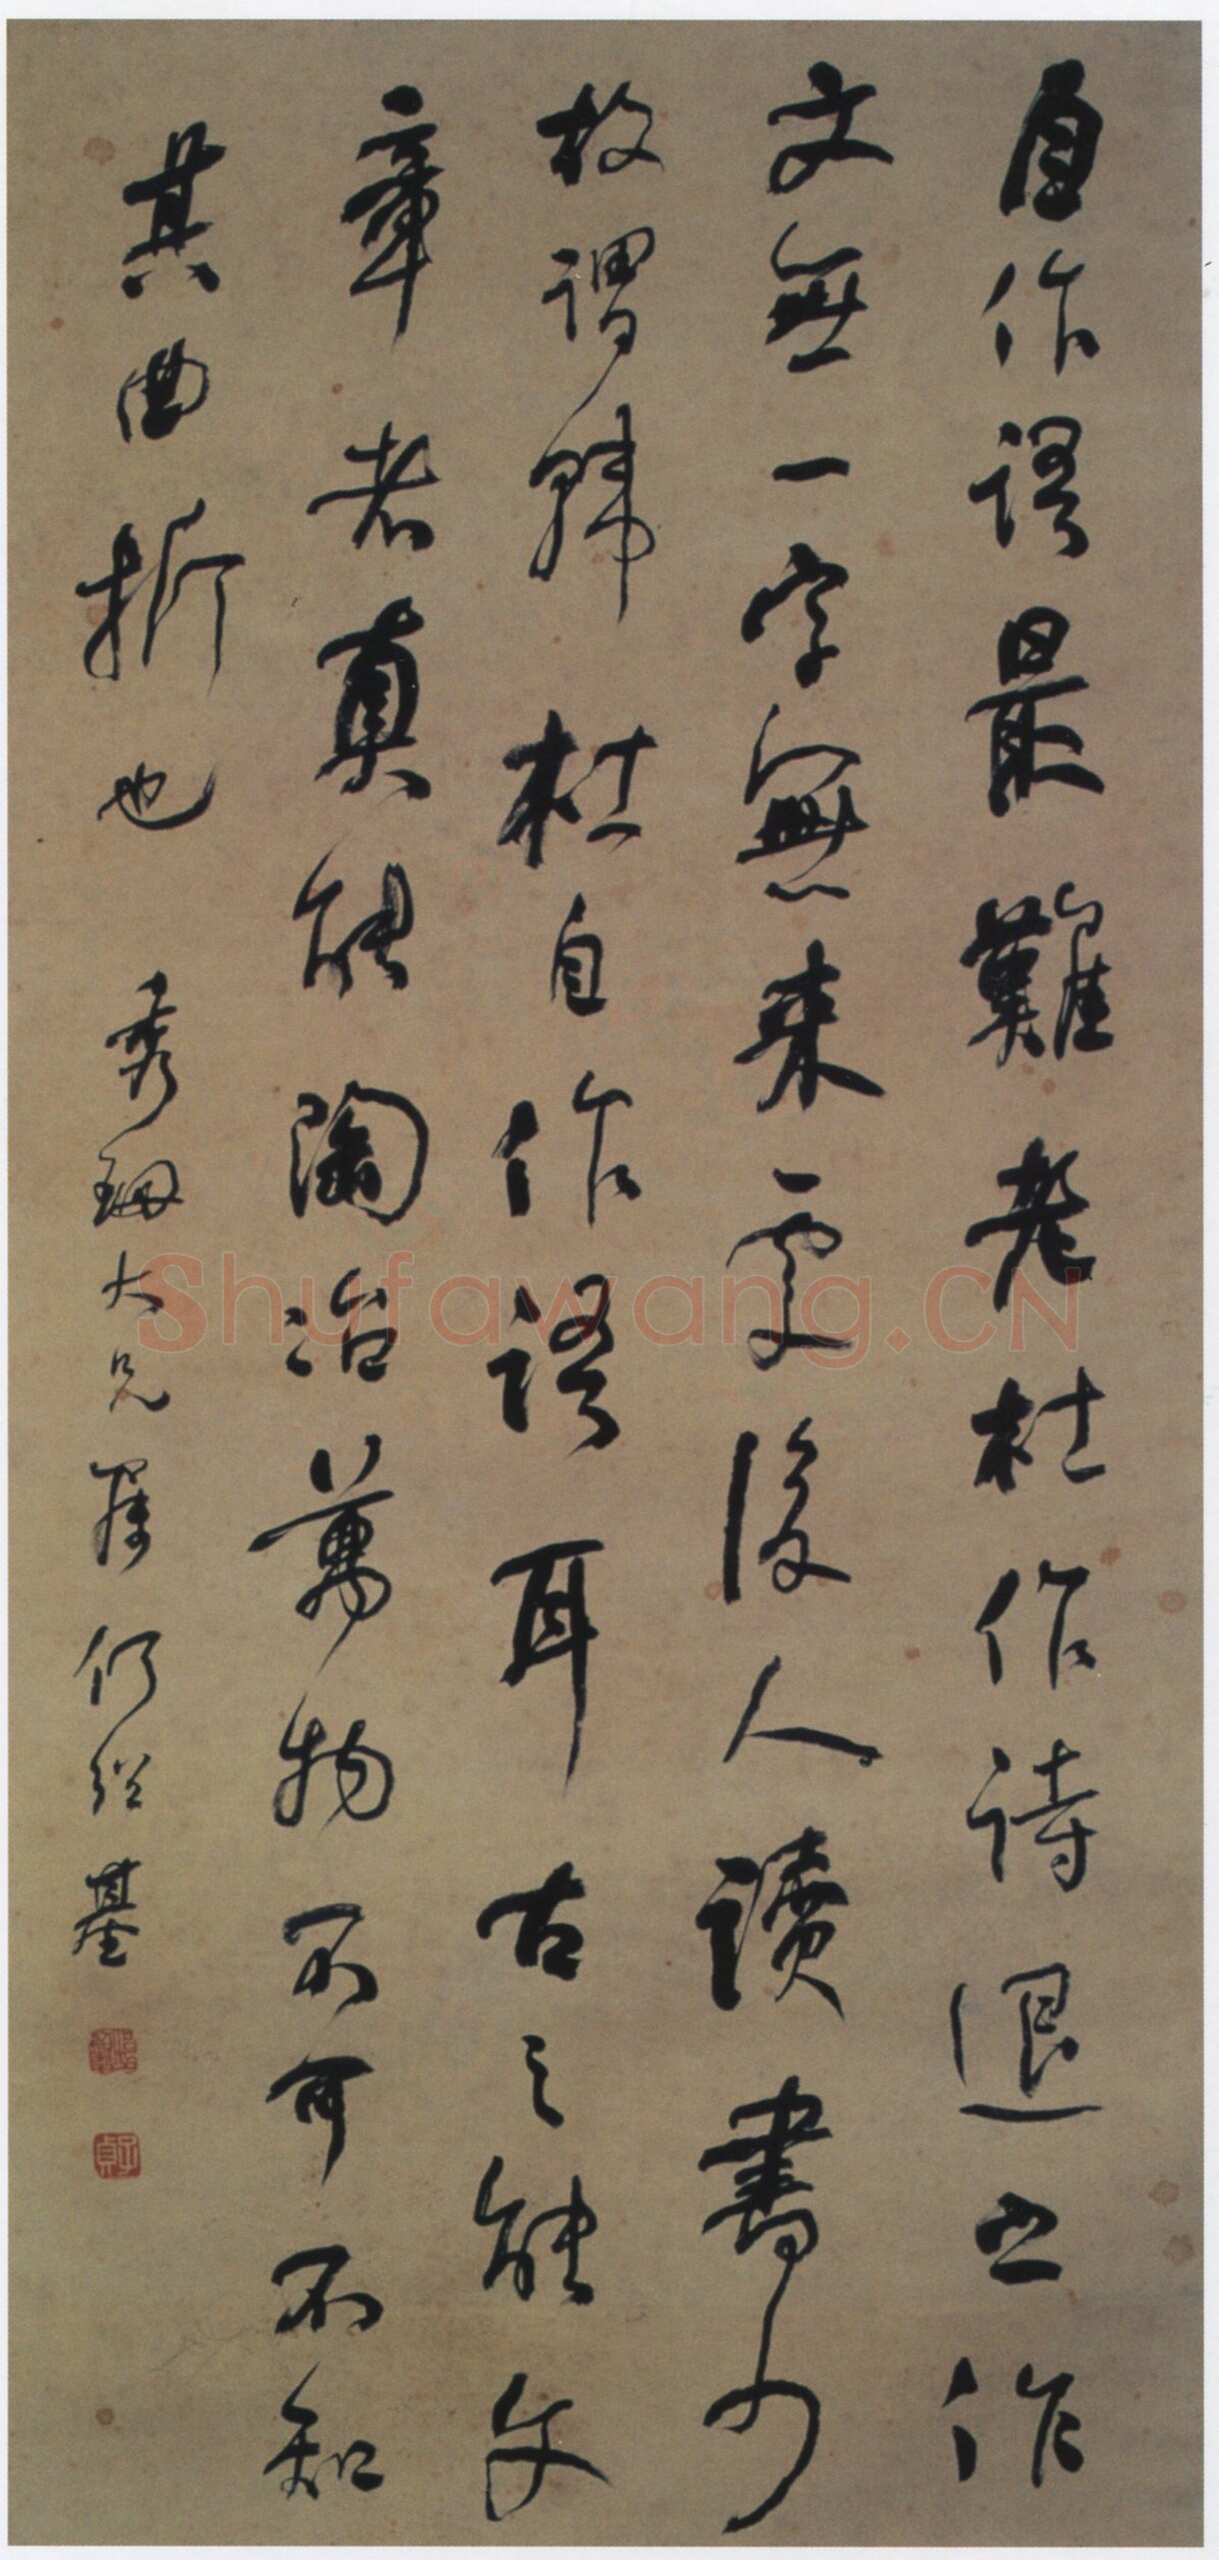 自作語最難老杜作詩退之作
文無一字無來處後人讀書少
故謂韓杜自作語耳古之能文
章者真能陶冶萬物不可不知
其曲折也 秀珊大兄屬 何紹基
子貞
Shufawang.CN